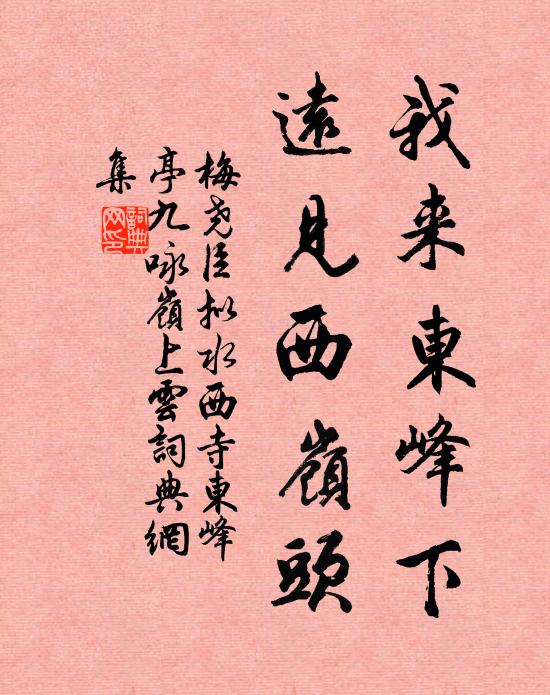 我来東峰下
遠見西嶺頭
梅堯臣拟水西寺東峰
亭九咏嶺上雲詞典網
集
詞典
网印